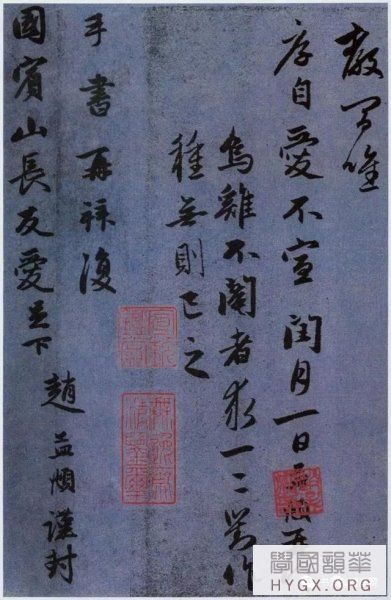 唯
厚自愛不宣 閏月一日孟頫再
烏雞不閹者求一二對作
種無則已之
手書再拜復
國賓山長友愛足下 趙孟頫謹封
學國韻華
HYGX.ORG